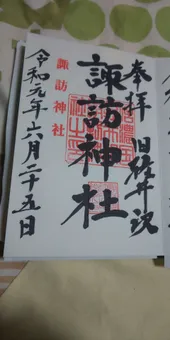 奉拝
諏訪神社
諏訪神社
令和元年六月二十五日